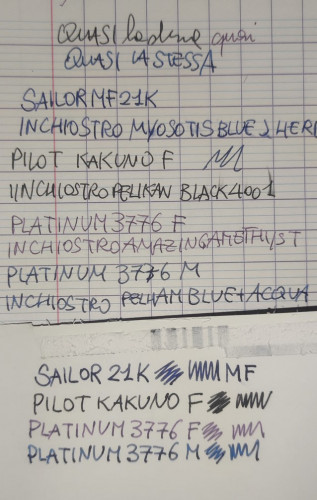 QUASI la penna quasi
QUASI LA STESSA
SAILOR MF 21K
INCHIOSTRO MYOSOTIS BLUE J HERB
PILOT KAKUNO F
INCHIOSTRO PELIKAN BLACK 4001
PLATINUM 3776 F
INCHIOSTRO AMAZING AMETHYST
PLATINUM 3776 M
INCHIOSTRO PELHAM BLUE + ACQUA
SAILOR 21K MF
PILOT KAKUNO F
PLATINUM 3776 F
PLATINUM 3776 M